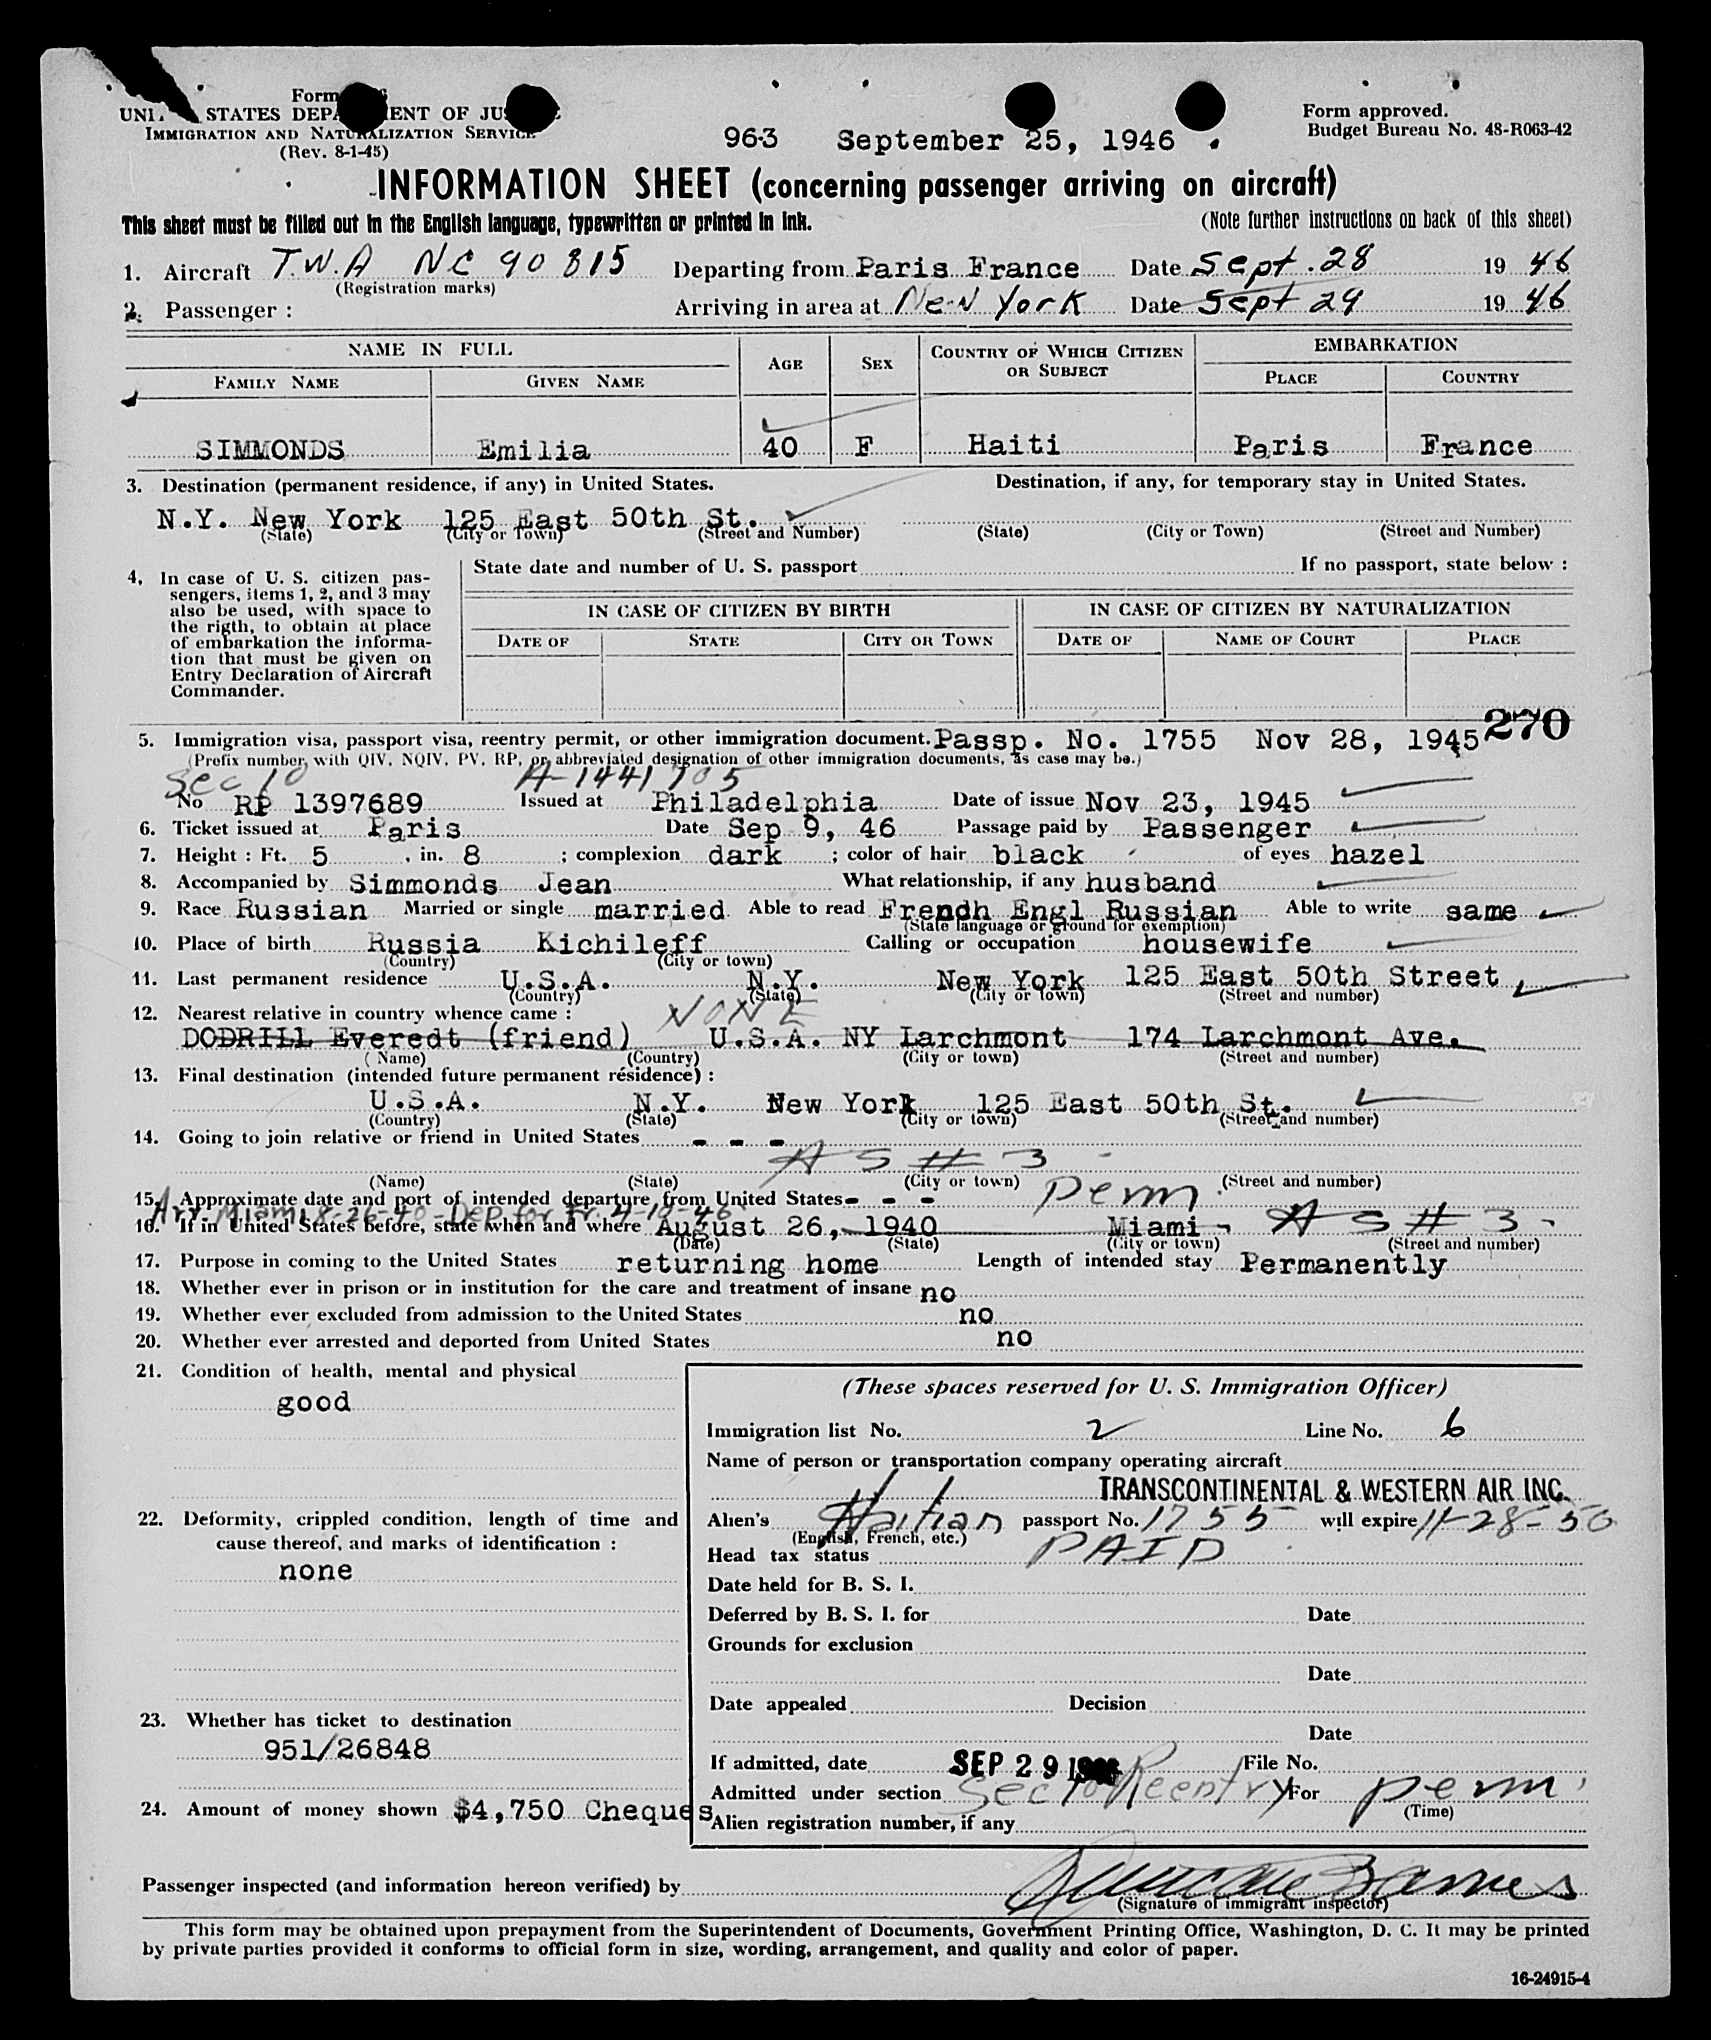 Form
STATES DEPARTMENT OF
IMMIGRATION AND NATURALIZATION SERVICE
(Rev. 8-1-45)
963 September 25, 1946
Form approved.
Budget Bureau No. 48-R063-42
INFORMATION SHEET (concerning passenger arriving on aircraft)
This sheet must be filled out in the English language, typewritten or printed in ink. (Note further instructions on back of this sheet)
1. Aircraft T.W.A NC 90 815 Departing from Paris France Date Sept. 28 19 46
(Registration marks)
2. Passenger : Arriving in area at New York Date Sept 29 19 46
NAME IN FULL AGE SEX COUNTRY OF WHICH CITIZEN OR SUBJECT EMBARKATION
FAMILY NAME GIVEN NAME PLACE COUNTRY
SIMMONDS Emilia 40 F Haiti Paris France
3. Destination (permanent residence, if any) in United States. Destination, if any, for temporary stay in United States.
N.Y. New York 125 East 50th St.
(State) (City or Town) (Street and Number) (State) (City or Town) (Street and Number)
4. In case of U. S. citizen pas-
sengers, items 1, 2, and 3 may
also be used, with space to
the rigth, to obtain at place
of embarkation the informa-
tion that must be given on
Entry Declaration of Aircraft
Commander.
State date and number of U. S. passport If no passport, state below :
IN CASE OF CITIZEN BY BIRTH IN CASE OF CITIZEN BY NATURALIZATION
DATE OF STATE CITY OR TOWN DATE OF NAME OF COURT PLACE
270
5. Immigration visa, passport visa, reentry permit, or other immigration document. Passp. No. 1755 Nov 28, 1945
(Prefix number, with QIV, NQIV, PV, RP, or abbreviated designation of other immigration documents, as case may be.)
Sec 10 A-1441705
No RP 1397689 Issued at Philadelphia Date of issue Nov 23, 1945
6. Ticket issued at Paris Date Sep 9, 46 Passage paid by Passenger
7. Height : Ft. 5 , in. 8 ; complexion dark ; color of hair black of eyes hazel
8. Accompanied by Simmonds Jean What relationship, if any husband
9. Race Russian Married or single married Able to read Frendh Engl Russian Able to write same
(State language or ground for exemption)
10. Place of birth Russia Kichileff Calling or occupation housewife
(Country) (City or town)
11. Last permanent residence U.S.A. N.Y. New York 125 East 50th Street
(Country) (State) (City or town) (Street and number)
12. Nearest relative in country whence came : NONE
DODRILL Everedt (friend) U.S.A. NY Larchmont 174 Larchmont Ave.
(Name) (Country) (City or town) (Street and number)
13. Final destination (intended future permanent résidence) :
U.S.A. N.Y. New York 125 East 50th St.
(Country) (State) (City or town) (Street and number)
14. Going to join relative or friend in United States - - -
AS # 3
(Name) (State) (City or town) (Street and number)
15. Approximate date and port of intended departure from United States - - - perm
Arr. Miami 8-26-40 - Dep for Fr. 4-19-46
16. If in United States before, state when and where August 26, 1940 Miami AS # 3
(Date) (State) (City or town) (Street and number)
17. Purpose in coming to the United States returning home Length of intended stay Permanently
18. Whether ever in prison or in institution for the care and treatment of insane no
19. Whether ever excluded from admission to the United States no
20. Whether ever arrested and deported from United States no
21. Condition of health, mental and physical
good
22. Deformity, crippled condition, length of time and
cause thereof, and marks of identification :
none
23. Whether has ticket to destination
951/26848
24. Amount of money shown $4,750 Cheques
(These spaces reserved for U. S. Immigration Officer)
Immigration list No. 2 Line No. 6
Name of person or transportation company operating aircraft
TRANSCONTINENTAL & WESTERN AIR INC.
Alien's Haitian passport No. 1755 will expire 11-28-50
(English, French, etc.)
Head tax status PAID
Date held for B. S. I.
Deferred by B. S. I. for Date
Grounds for exclusion
Date
Date appealed Decision
Date
If admitted, date SEP 29 1946 File No.
Admitted under section Sec 10 Reentry For perm
(Time)
Alien registration number, if any
Passenger inspected (and information hereon verified) by
(Signature of immigrant inspector)
This form may be obtained upon prepayment from the Superintendent of Documents, Government Printing Office, Washington, D. C. It may be printed
by private parties provided it conforms to official form in size, wording, arrangement, and quality and color of paper.
16-24915-4